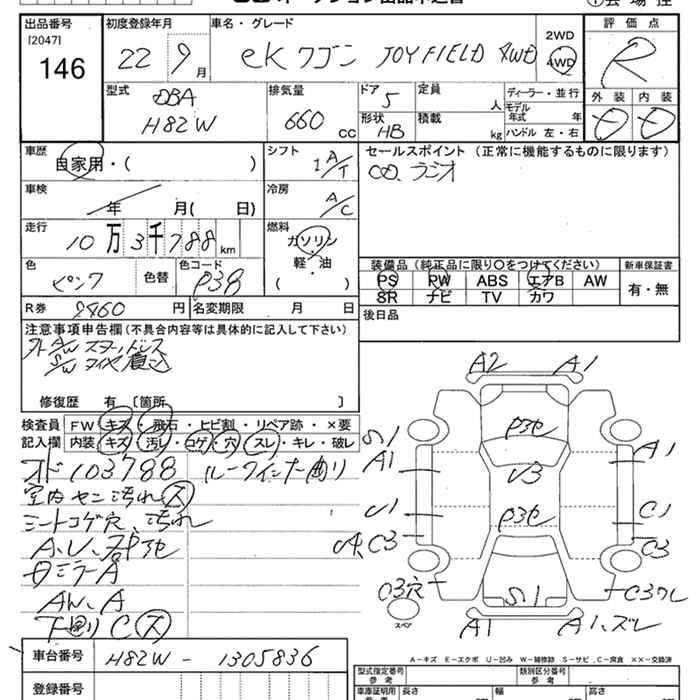 出品番号
[2047]
146
初度登録年月
22 9月
車名・グレード
eKワゴン JOY FIELD 4WD
2WD
4WD
評価点
R
型式
DBA
H82W
排気量
660 cc
ドア
5
形状
HB
定員
人
積載
kg
ディーラー・並行
モデル年式 年
ハンドル 左・右
外装
内装
車歴
自家用・( )
シフト
1 A/T
セールスポイント(正常に機能するものに限ります)
CD、ラジオ
車検
年 月( 日)
冷房
A/C
走行
10万3千788km
燃料
ガソリン
軽・油
( )
色
ピンク
色替
色コード
P38
装備品(純正品に限り○をつけてください)
新車保証書
PS PW ABS エアB AW
SR ナビ TV カワ
有・無
R券
円
名変期限 月 日
後日品
注意事項申告欄(不具合内容等は具体的に記入して下さい)
修復歴 有 〔箇所 〕
検査員記入欄
FW キズ・飛石・ヒビ割・リペア跡・×要
内装 キズ・汚レ・コゲ・穴・スレ・キレ・破レ
103788
シートコゲ穴、汚れ
A2 A1
P3セ
V3
P3セ
S1
A1
U1
C3
A1
C1
C3
C3穴
S1
A1
スペア
A-キズ E-エクボ U-凹み W-補修跡 S-サビ C-腐食 XX-交換済
車台番号
H82W - 1305836
登録番号
型式指定番号
参考
類別区分番号
参考
車庫証明用
参考
長さ
幅
高さ